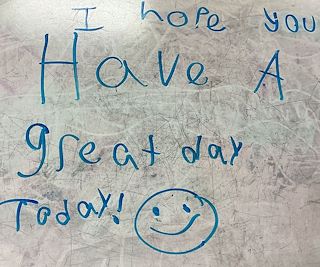 I hope you
Have A
great day
Today!